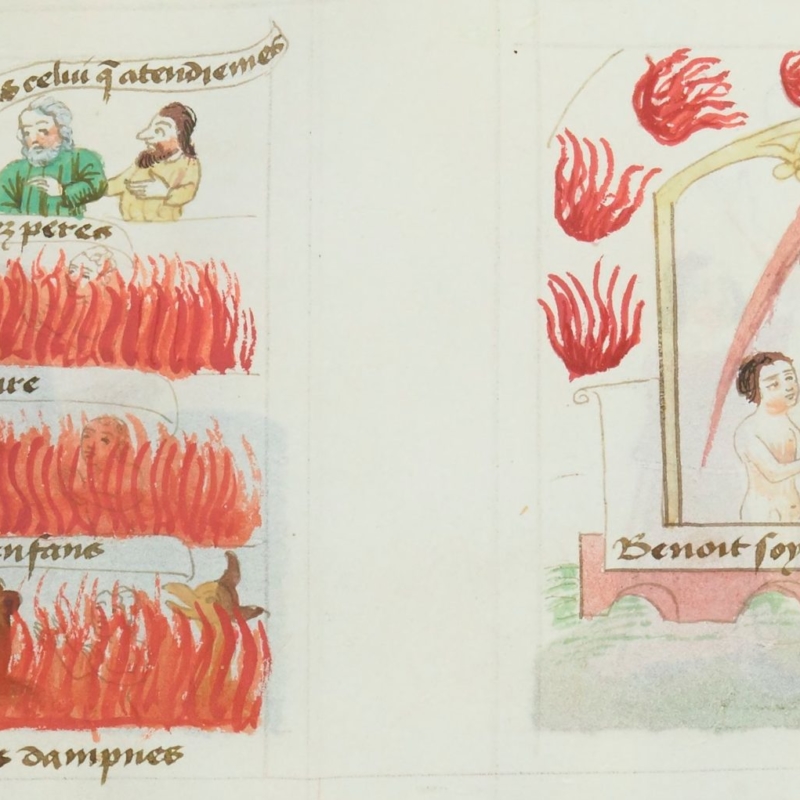 s celui q̃ atendiemes
z peres
ire
enfans
s dampnes
Benoit soy